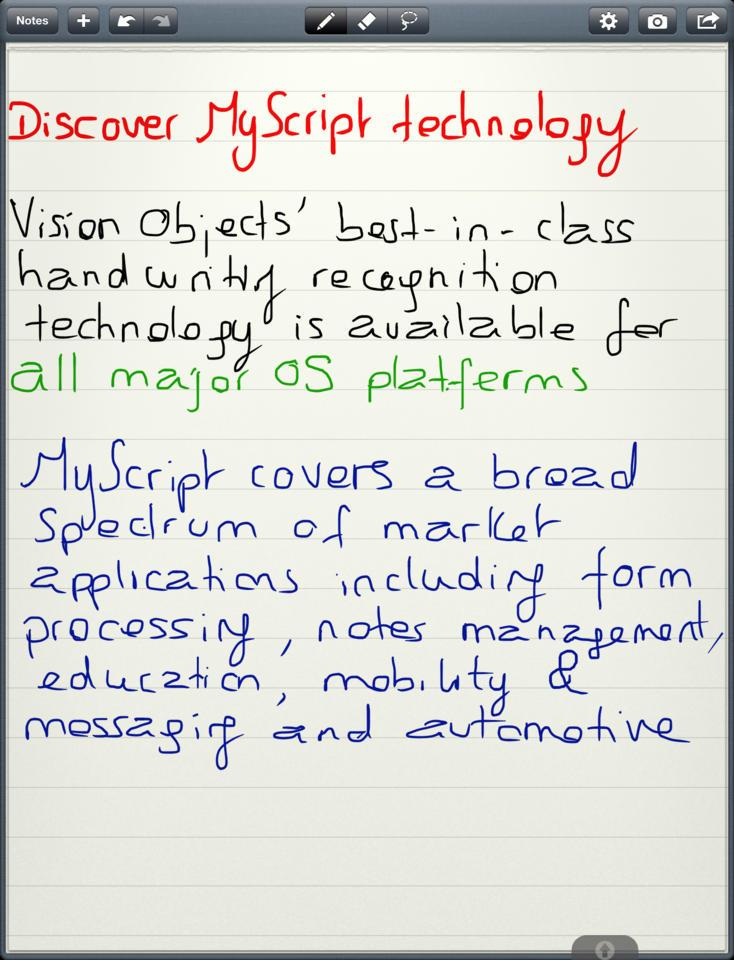 Notes
Discover MyScript technology
Vision Objects' best-in-class
handwriting recognition
technology is available for
all major OS platforms
MyScript covers a broad
spectrum of market
applications including form
processing, notes management,
education, mobility &
messaging and automotive